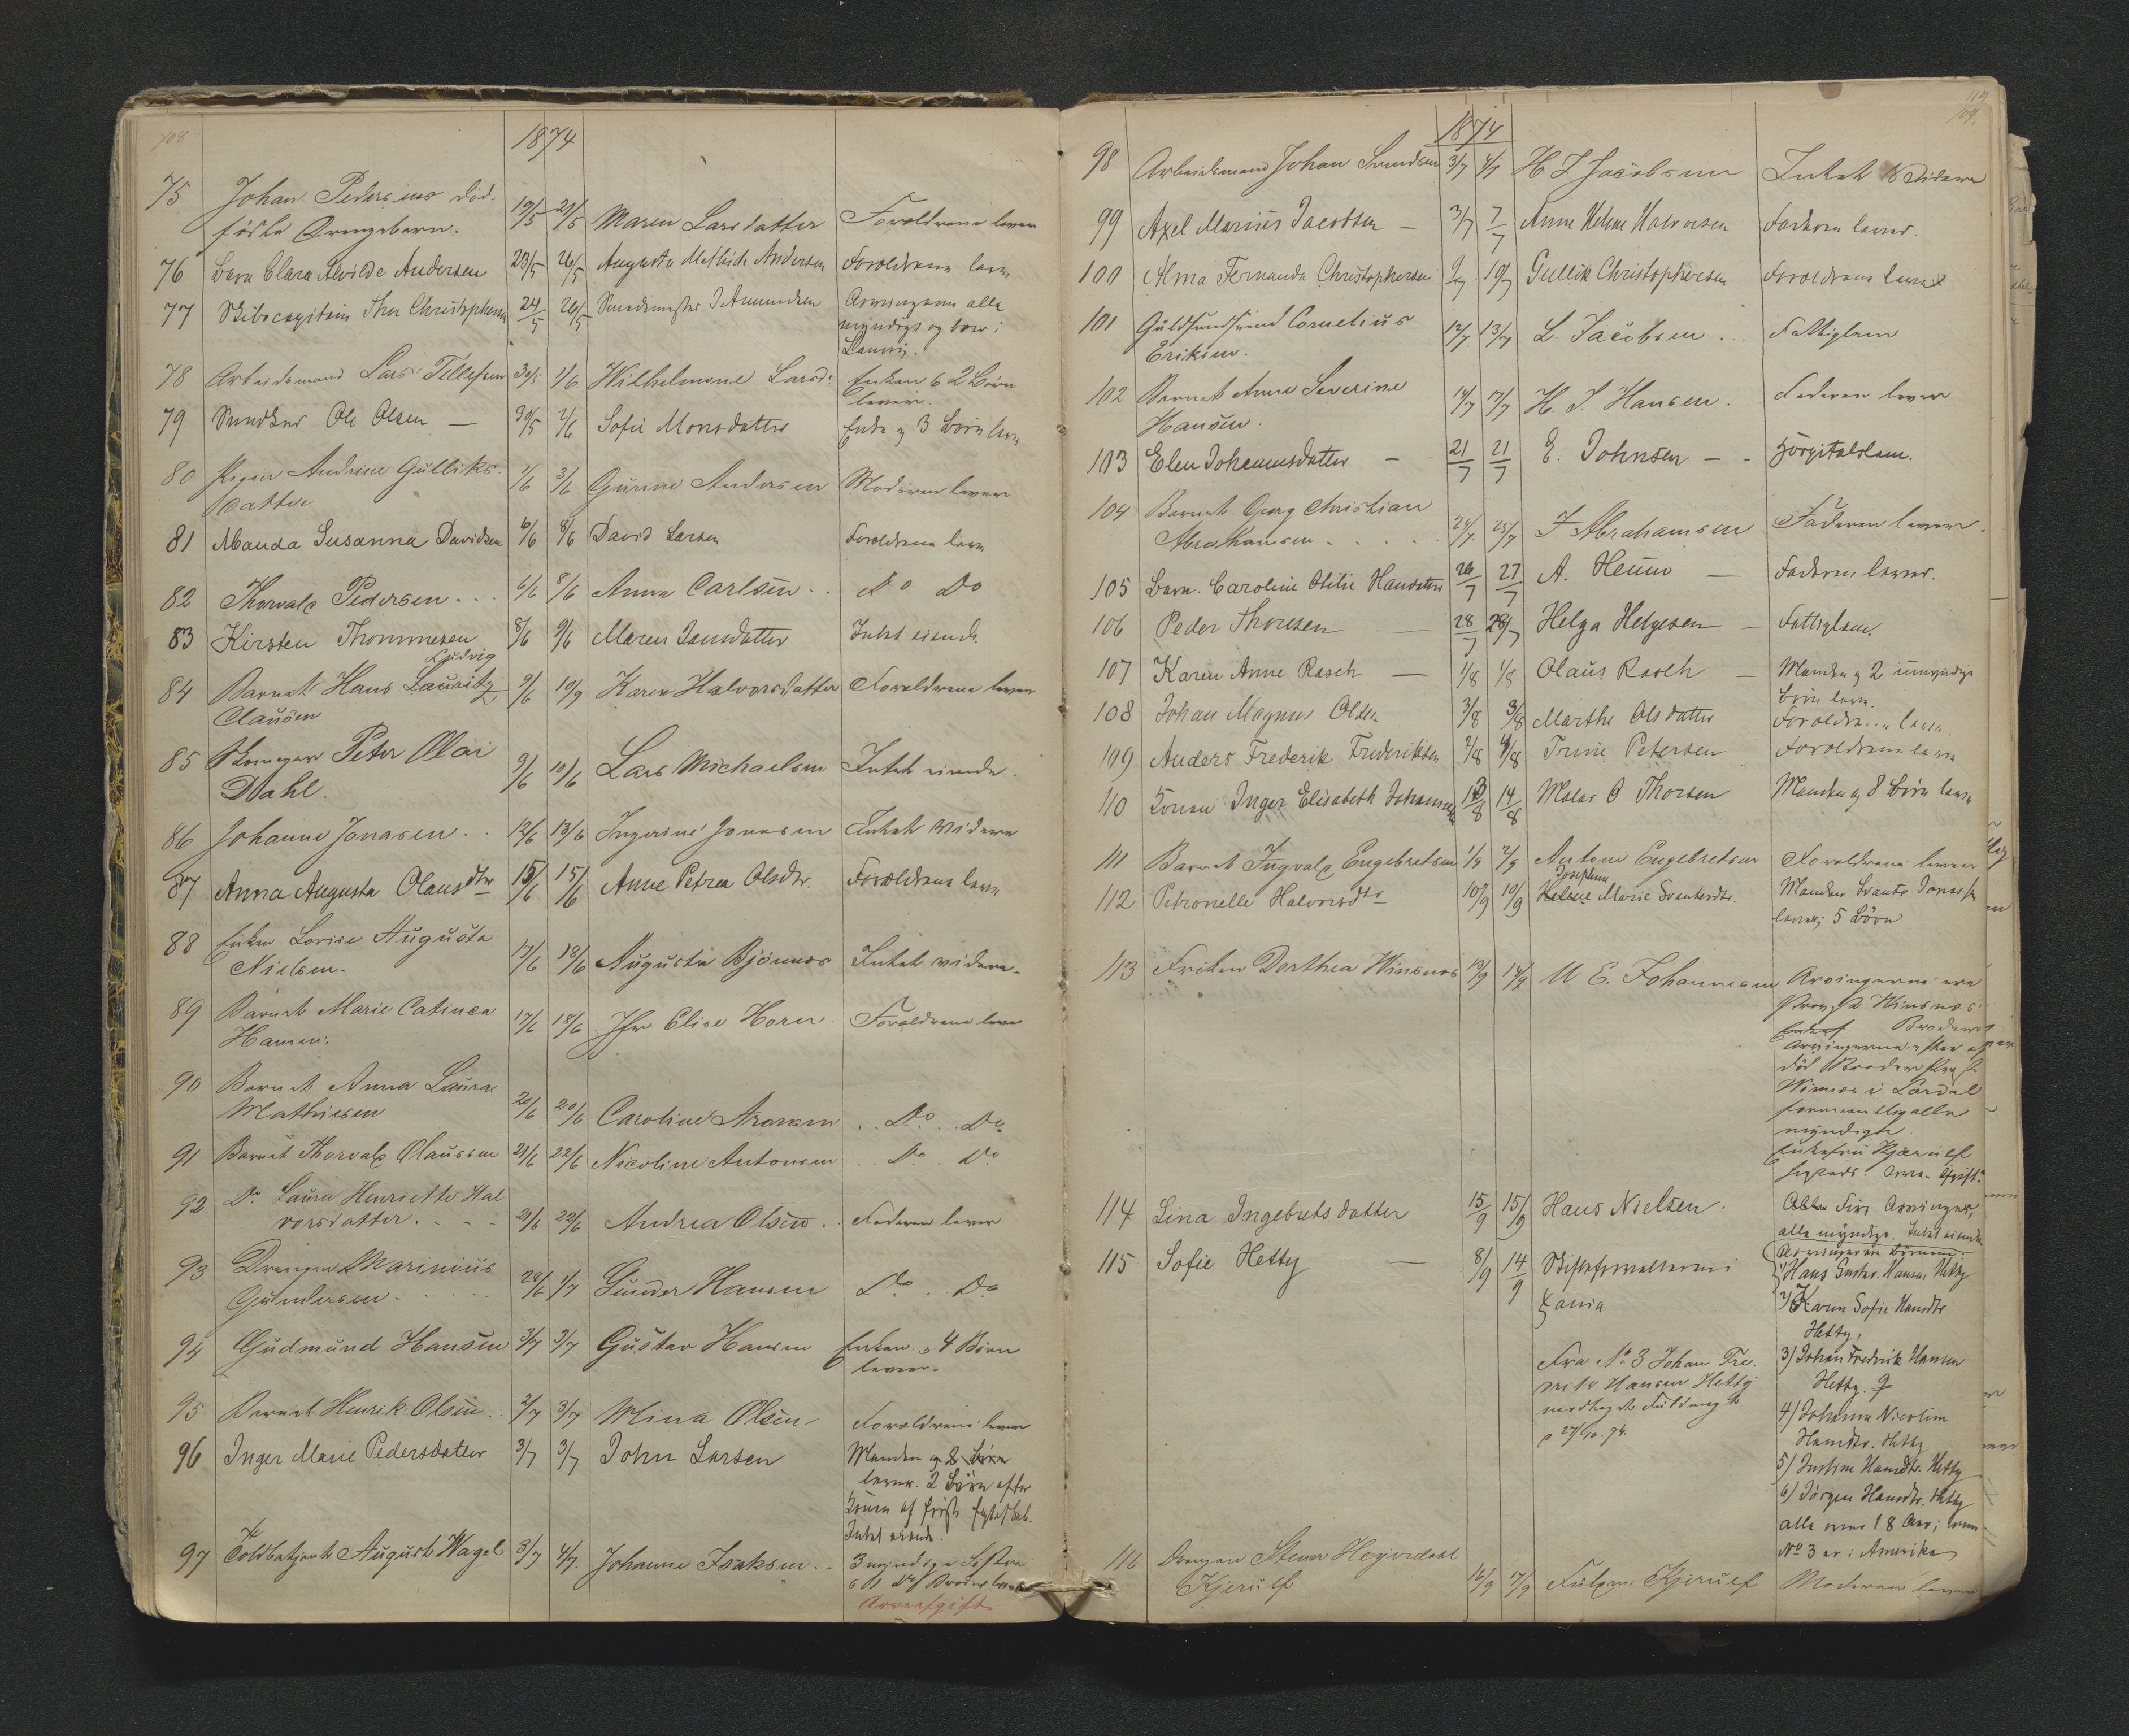 108
1874
75 Johan Petersens død-
fødte Drengebarn. 19/5 21/5 Maren Larsdatter Forældrene lever
76 Barn Clara Alvilde Andersen 23/5 26/5 Augusta Mathide Andersen Forældrene leve
77 Skibscapitain Thor Christophersen 24/5 26/5 Amundsen Arvingerne alle
myndige og bor i
Laurvig.
78 Arbeidsmand Lars Tellefsen 30/5 1/6 Wilhelmine Larsd. Enken & 2 Børn
lever.
79 Ole Olsen — 30/5 2/6 Sofie Monsdatter Enke og 3 Børn leve
80 Pigen Andrine Gulliks-
datter 1/6 3/6 Gurine Andersen Moderen lever
81 Manda Susanna Davidsen 6/6 8/6 David Larsen Forældrene leve
82 Thorvald Pedersen 6/6 8/6 Anna Carlsen Do Do
83 Kirsten Thommesen 8/6 9/6 Maren Jansdatter Intet eiende
Ludvig
84 Barnet Hans Lauritz 9/6 10/9 Karen Halvorsdatter Forældrene lever
Clausen
85 Peter Olai
Dahl. 9/6 10/6 Lars Michaelsen Intet eiende.
86 Johanne Jonasen 12/6 13/6 Ingerine Jonasen Intet videre
87 Anna Augusta Olausdtr 15/6 15/6 Anne Petrea Olsdtr. Forældrene leve
88 Enken Lovise Augusta
Nielsen. 17/6 18/6 Augusta Bjønnes Intet videre.
89 Barnet Marie Catinca
Hansen. 17/6 18/6 Jfr Elise Horn Forældrene leve
90 Barnet Anna Laura
Mathisen 20/6 20/6 Caroline Aronsen Do Do
91 Barnet Thorvald Olaussen 21/6 22/6 Nicoline Antonsen Do Do
92 Do Laura Henriette Hal
vorsdatter. 21/6 22/6 Andrea Olsen Faderen lever
93 Drengen Marinius
Gundersen 28/6 1/7 Gunder Hansen Do Do
94 Gudmund Hansen 3/7 3/7 Gustav Hansen Enken & 4 Børn
lever.
95 Barnet Henrik Olsen. 2/7 3/7 Mina Olsen Forældrene lever
96 Inger Marie Pedersdatter 3/7 3/7 John Larsen Manden og 2 Børn
lever. 2 Børn efter
af første Egteskab.
Intet eiende.
97 Toldbetjent August Wagel 3/7 4/7 Johanne Isaksen 3 myndige Søstre
Broder lever
Arveafgift
109
109.
1874
98 Arbeidsmand Johan Svendsen 3/7 4/7 H J Jacobsen Intet videre
99 Axel Marius Jacobsen — 3/7 7/7 Anne Helene Halvorsen Faderen lever.
100 Alma Fernanda Christophersen 9/7 10/7 Gullik Christophersen Forældrene lever
101 Cornelius
Eriksen. 12/7 13/7 L. Jacobsen Fattiglem
102 Barnet Anne Severine
Hansen. 14/7 17/7 H. J. Hansen. Faderen lever
103 Elen Johannesdatter — 21/7 21/7 E. Johnsen — Hospitalslem.
104 Barnet Georg Christian
Abrahamsen 24/7 25/7 J Abrahamsen Faderen lever.
105 Barn. Caroline Otilie Hansdatter 26/7 27/7 A. — Faderen lever.
106 Peder Thorsen 28/7 28/7 Helga Helgesen — Fattiglem.
107 Karen Anne Rasch — 1/8 1/8 Olaus Rasch — Manden og 2 umyndige
Børn leve.
108 Johan Magnus Olsen 3/8 3/8 Marthe Olsdatter Forældrene leve.
109 Anders Frederik Frederiksen 2/8 4/8 Trine Petersen Forældrene leve
110 Konen Inger Elisabeth Johannesen 13/8 14/8 O Thorsen Manden og 8 Børn leve
111 Barnet Ingvald Engebretsen 1/9 2/9 Antone Engebretsen Forældrene lever
Josephine
112 Petronelle Halvorsdtr 10/9 10/9 Helene Marie Manden
lever; 5 Børn
113 Frøken Dorthea Winsnes 13/9 14/9 M E. Johannesen Arvingerne ere
Provst Winsnes
Broders
Arvingerne efter af
død Broder
Winsnes i Lardal
formeentlig alle
myndige.
Enkefru Kjerulf
114 Lina Ingebretsdatter 15/9 15/9 Hans Nielsen. Fire Arvinger,
alle myndige. Intet eiende.
115 Sofie Hetty — 8/9 14/9 Skifteforvalteren i
Arvingerne Børnene:
1) Hans Gustav Hansen Hetty
2) Karen Sofie Hansdtr
Hetty,
Fra No 3 Johan Fre-
drik Hansen Hetty
modtaget Fuldmagt
27/10. 74.
3) Johan Fredrik Hansen
Hetty.
4) Johanne Nicoline
Hansdtr. Hetty
5) Justine Hansdtr. Hetty
6) Jørgen Hansdtr. Hetty
alle over 18 Aar;
No 3 er i Amerika
116 Drengen Steener Heyerdahl
Kjerulf 16/9 17/9 Kjerulf Moderen lever